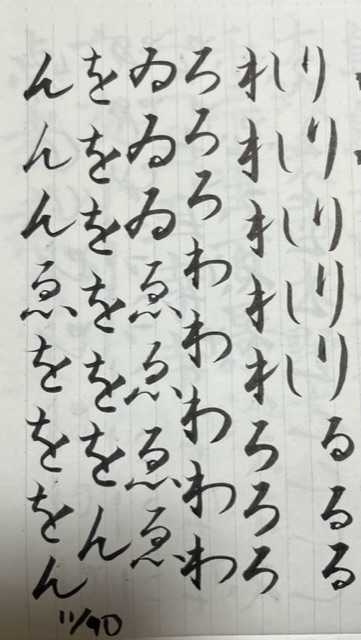 りりりりりるるる
れれれれれろろろ
ろろろわわわわわ
ゐゐゐゑゑゑゑ
ををををををん
んんんゑをををん
11/90